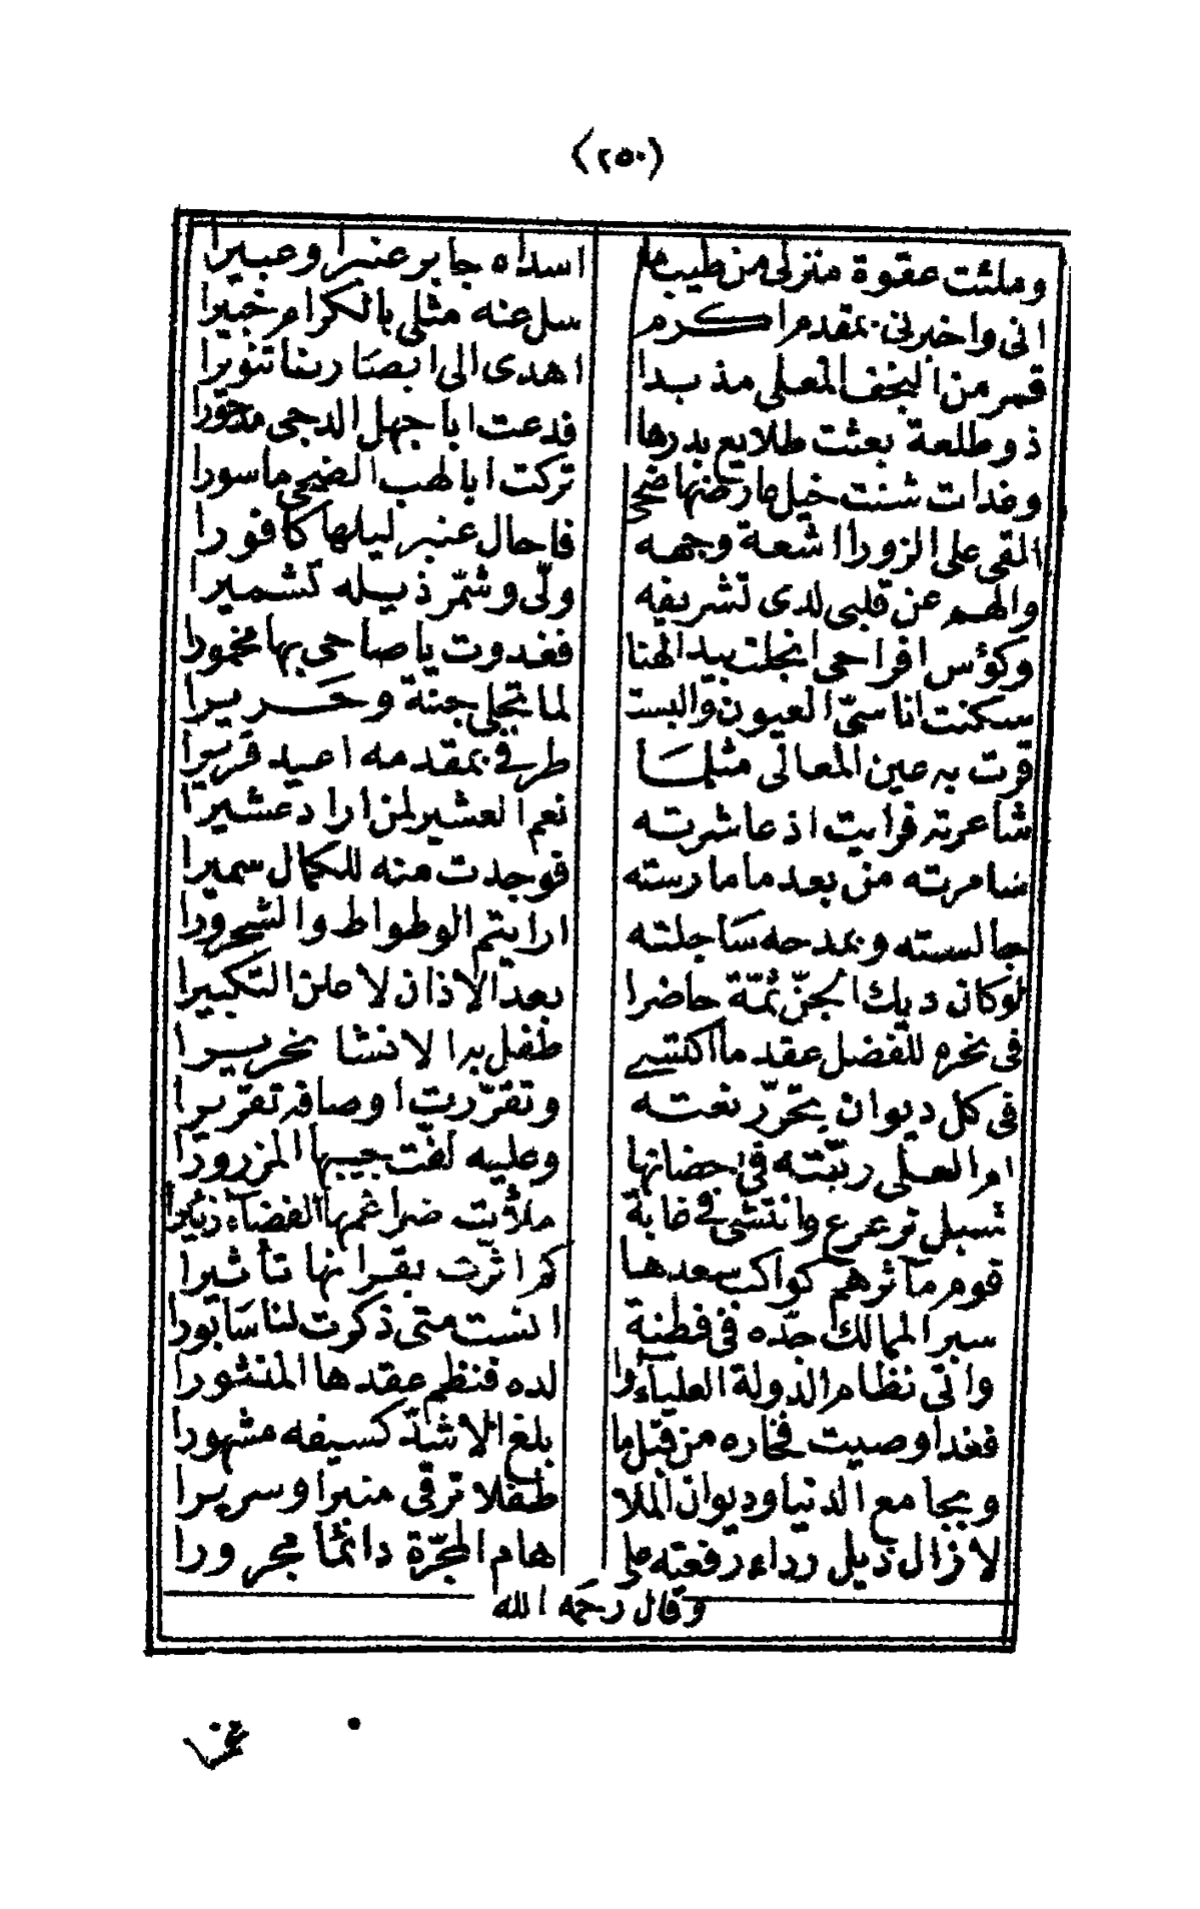 (٢٥٠)
وملئت عقوة منزلى من طيب ما اسداه جابر عنبرا وعبيرا
انى واخبرنى بمقدم اكرم سل عنه مثلى بالكرام خبيرا
قمر من النجف المعلى مذ بدا اهدى الى ابصارنا تنويرا
ذو طلعة بعثت طلايع بدرها فدعت ابا جهل الدجى مدحورا
وغدات شنت خيل عارضها ضحى تركت ابا لهب الضحى ماسورا
القى على الزورا اشعة وجهه فاحال عنبر ليلها كافورا
والهم عن قلبى لدى تشريفه ولّى وشمّر ذيله تشميرا
وكؤس افراحى انجلت بيد الهنا فغدوت يا صاحى بها مخمورا
سكنت اناسىّ العيون والبست لما تجلى جنة وحريرا
قرت به عين المعالى مثلما طرفى بمقدمه اعيد قريرا
شاعرته فرايت اذ عاشرته نعم العشير لمن اراد عشيرا
سامرته من بعد ما مارسته فوجدت منه للكمال سميرا
جالسته وبمدحه ساجلته ارايتم الوطواط والشحرورا
لو كان ديك الجنّ ثمّة حاضرا بعد الاذان لاعلن التكبيرا
فى نحره للفضل عقد ما اكتسى طفل برا لا نشا نحريرا
فى كل ديوان يتحرّر نعته وتقرّرت اوصافه تقريرا
ام العلى ربّته فى احضانها وعليه لفّت جيبها المزرورا
شبل ترعرع وانتشى فى غابة ملأته ضراغمها الفضاء زئيرا
قوم مآثرهم كواكب سعدها كم اثرت بقرانها تأثيرا
سبر الممالك حدّه فى فطنة انست متى ذكرت لنا سابورا
واتى نظام الدولة العلياء وا لده فنظم عقدها المنثورا
فغدا وصيت فخاره من قبل ما بلغ الاشدّ كسيفه مشهورا
وبجامع الدنيا وديوان الملا طفلا ترقى منبرا وسريرا
لا زال ذيل رداء رفعته على هام المجرّة دائما مجرورا
وقال رحمه الله